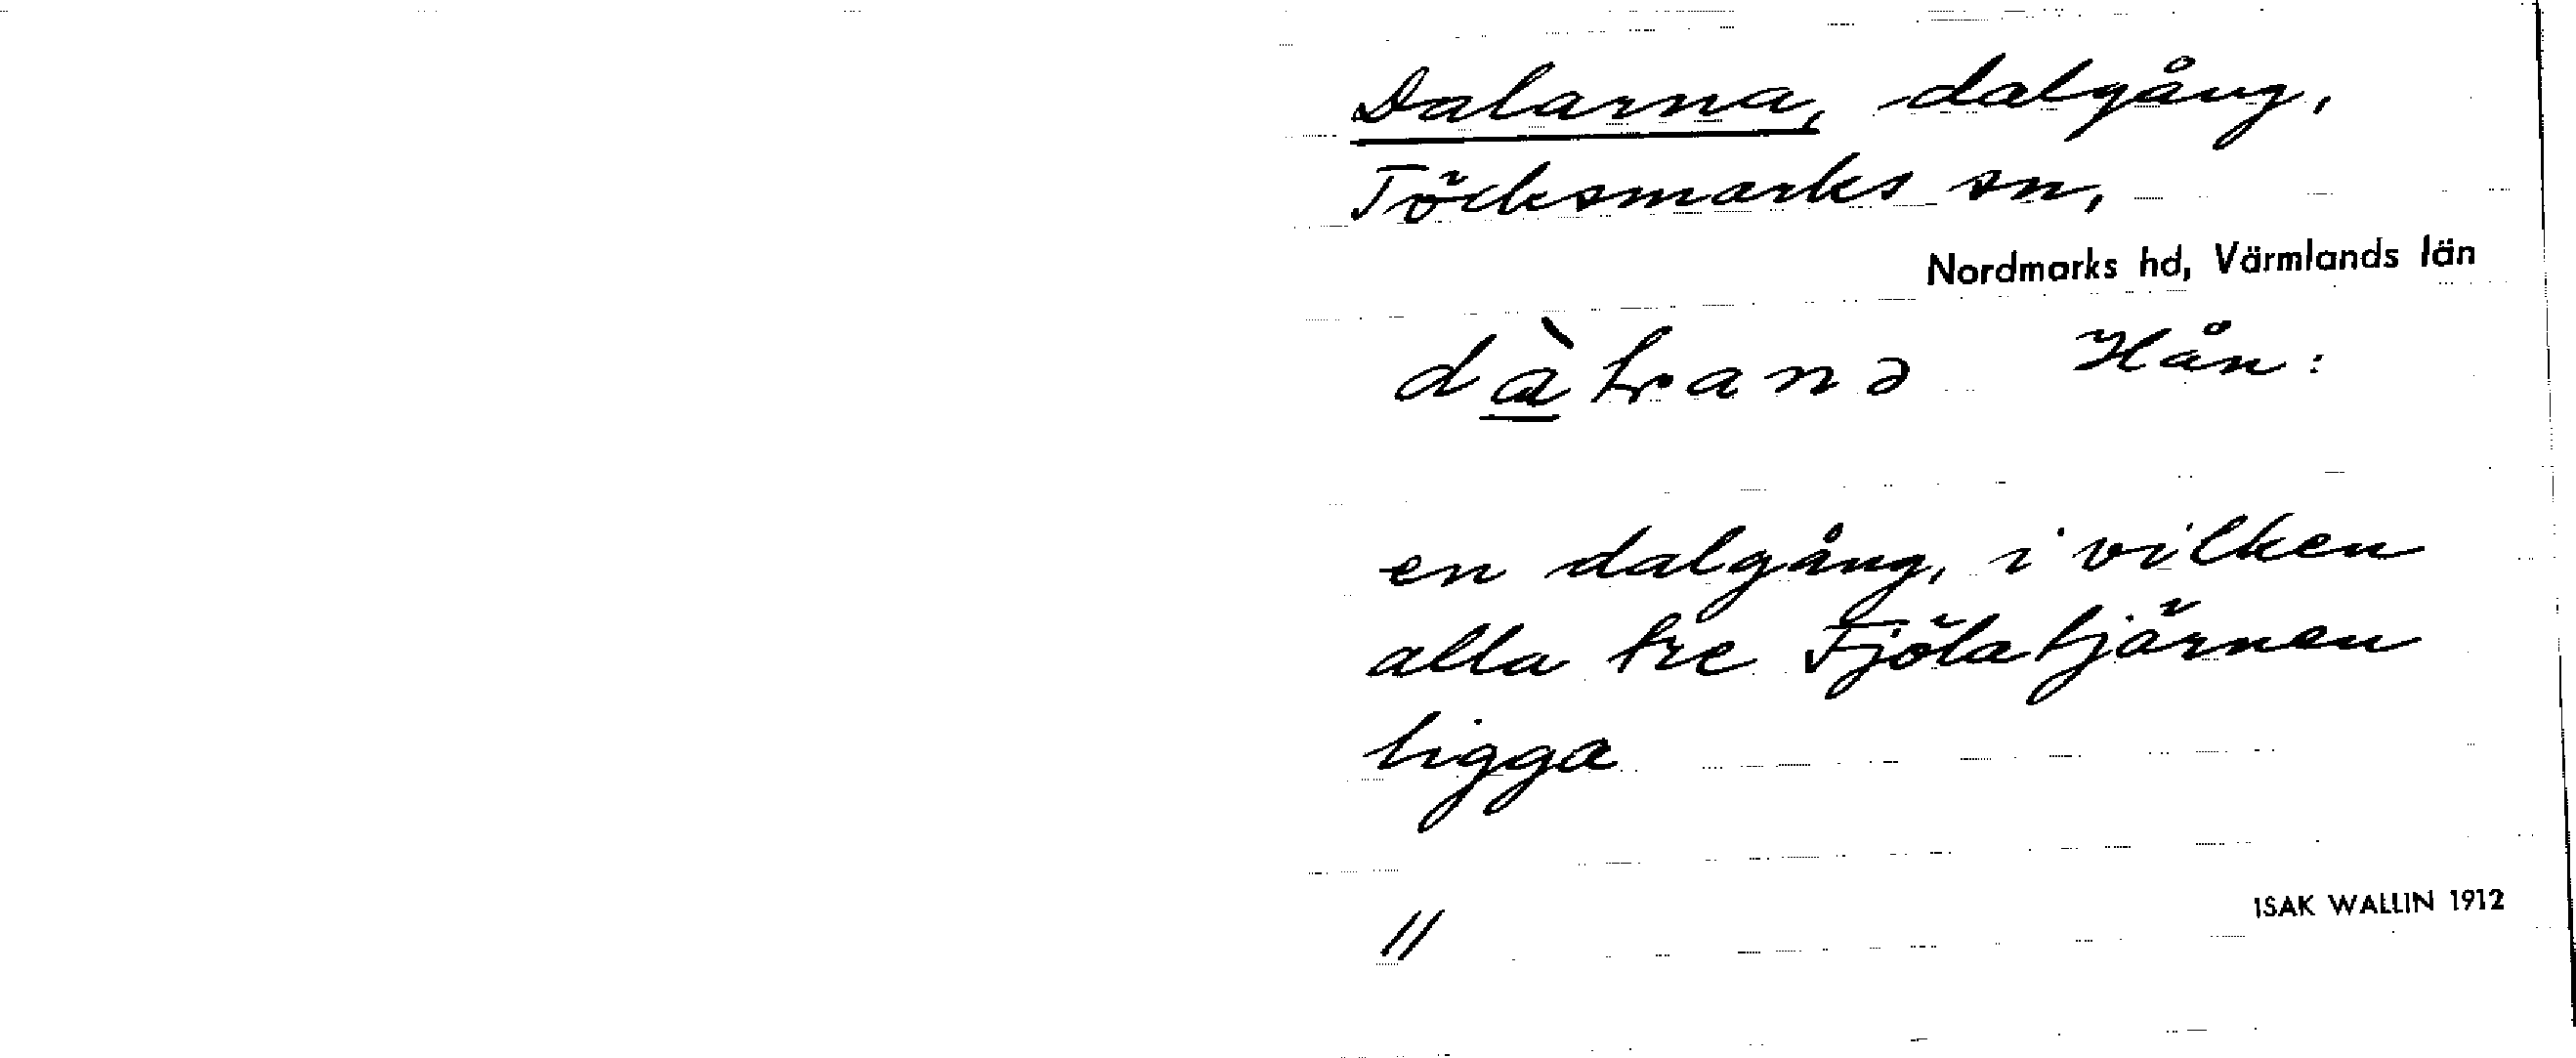 Dalarna, dalgång,
Töcksmarks sn,
Nordmarks hd, Värmlands län
Hån:
en dalgång, i vilken
alla tre Fjölatjärnen
ligga
11
ISAK WALLIN 1912